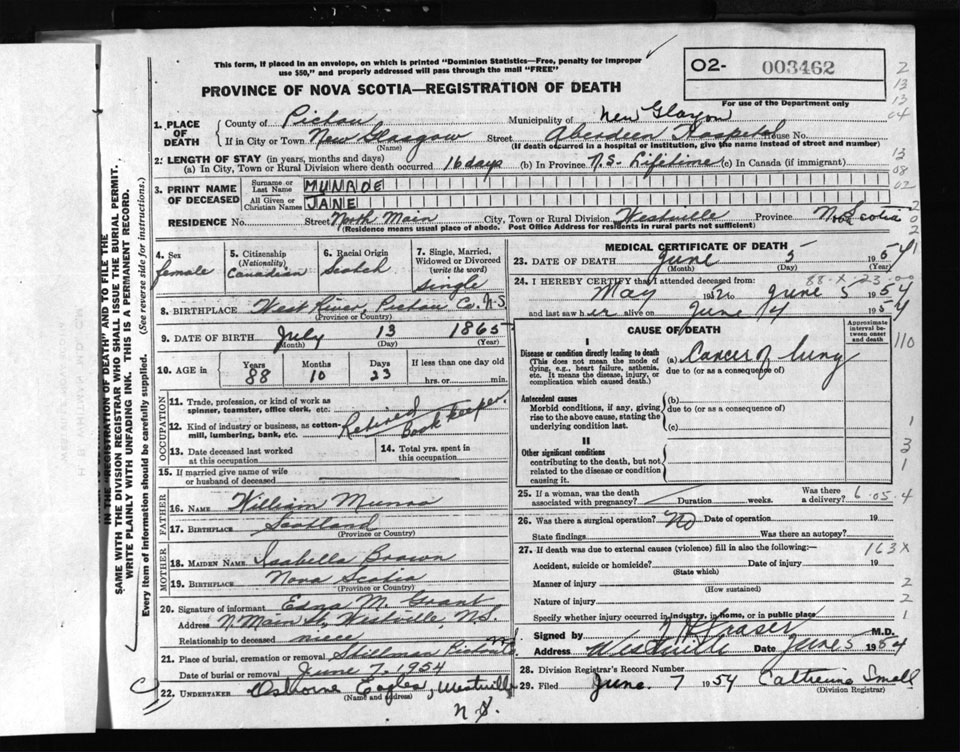 This form, if placed in an envelope, on which is printed "Dominion Statistics—Free, penalty for improper
use $50," and properly addressed will pass through the mail "FREE"
02- 003462
For use of the Department only
PROVINCE OF NOVA SCOTIA—REGISTRATION OF DEATH
1. PLACE OF DEATH
County of Pictou Municipality of New Glasgow
If in City or Town New Glasgow Street Aberdeen Hospital House No.
(Name) (If death occurred in a hospital or institution, give the name instead of street and number)
2. LENGTH OF STAY (in years, months and days)
(a) In City, Town or Rural Division where death occurred 16 days (b) In Province N.S. Lifetime (c) In Canada (if immigrant)
3. PRINT NAME OF DECEASED
Surname or Last Name MUNROE
All Given or Christian Names JANE
RESIDENCE No. Street North Main City, Town or Rural Division Westville Province N. Scotia
(Residence means usual place of abode. Post Office Address for residents in rural parts not sufficient)
4. Sex female
5. Citizenship (Nationality) Canadian
6. Racial Origin Scotch
7. Single, Married, Widowed or Divorced (write the word) Single
8. BIRTHPLACE West River, Pictou Co. N.S.
(Province or Country)
9. DATE OF BIRTH July 13 1865
(Month) (Day) (Year)
10. AGE in Years 88 Months 10 Days 23 If less than one day old hrs. or min.
OCCUPATION
11. Trade, profession, or kind of work as spinner, teamster, office clerk, etc. Retired
12. Kind of industry or business, as cotton-mill, lumbering, bank, etc. Book Keeper
13. Date deceased last worked at this occupation
14. Total yrs. spent in this occupation
15. If married give name of wife or husband of deceased
FATHER
16. NAME William Munro
17. BIRTHPLACE Scotland
(Province or Country)
MOTHER
18. MAIDEN NAME Isabella Brown
19. BIRTHPLACE Nova Scotia
(Province or Country)
20. Signature of informant Edna M. Grant
Address N. Main St, Westville, N.S.
Relationship to deceased niece
21. Place of burial, cremation or removal Pictou
Date of burial or removal June 7, 1954
22. UNDERTAKER Osborne Eagles, Westville
(Name and address)
N S.
MEDICAL CERTIFICATE OF DEATH
23. DATE OF DEATH June 5 1954
(Month) (Day) (Year)
24. I HEREBY CERTIFY that I attended deceased from:
88-X-23
May 1952 to June 5 1954
and last saw her alive on June 4 1954
CAUSE OF DEATH
Approximate interval between onset and death
I
Disease or condition directly leading to death
(This does not mean the mode of dying, e.g., heart failure, asthenia, etc. It means the disease, injury, or complication which caused death.)
(a) Cancer of lung
due to (or as a consequence of)
Antecedent causes
Morbid conditions, if any, giving rise to the above cause, stating the underlying condition last.
(b)
due to (or as a consequence of)
(c)
II
Other significant conditions
contributing to the death, but not related to the disease or condition causing it.
25. If a woman, was the death associated with pregnancy? Duration weeks. Was there a delivery? 6.05.4
26. Was there a surgical operation? No Date of operation 19
State findings Was there an autopsy?
27. If death was due to external causes (violence) fill in also the following:—
163X
Accident, suicide or homicide? Date of injury 19
(State which)
Manner of injury
(How sustained)
Nature of injury
Specify whether injury occurred in industry, in home, or in public place
Signed by Fraser M.D.
Address Westville Date June 5 1954
28. Division Registrar's Record Number
29. Filed June 7 1954 Small
(Division Registrar)
2
13
13
04
13
08
02
110
1
3
1
2
2
1
IN THE "REGISTRATION OF DEATH" AND TO FILE THE
SAME WITH THE DIVISION REGISTRAR WHO SHALL ISSUE THE BURIAL PERMIT.
WRITE PLAINLY WITH UNFADING INK. THIS IS A PERMANENT RECORD.
Every item of information should be carefully supplied. (See reverse side for instructions.)